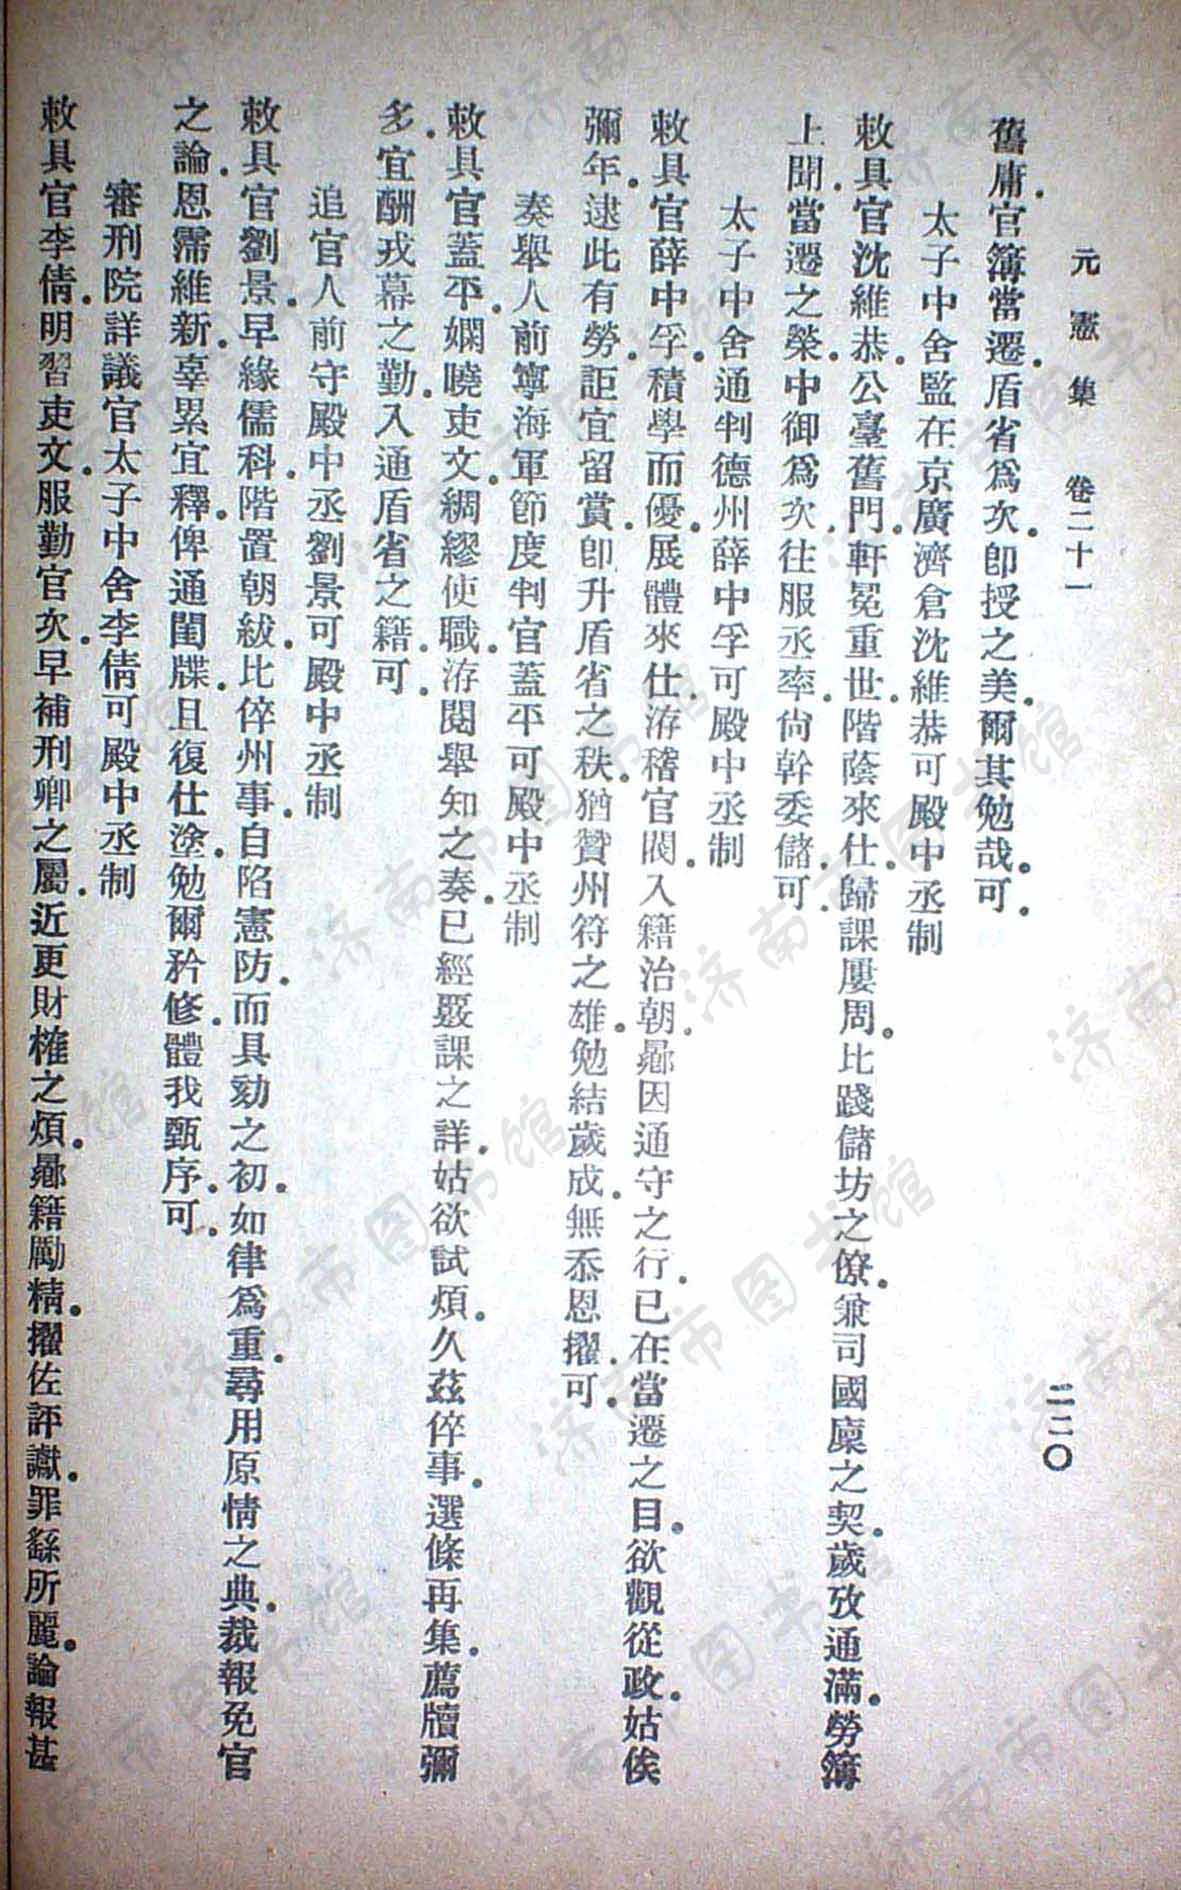 元憲集　卷二十一　二二〇
舊庸。官簿當遷。盾省爲次。卽授之美。爾其勉哉。可。
太子中舍監在京廣濟倉沈維恭可殿中丞制
敕具官沈維恭。公臺舊門。軒冕重世。階蔭來仕。歸課屢周。比踐儲坊之僚。兼司國廩之契。歲攷通滿。勞簿
上聞。當遷之榮。中御爲次。往服丞率。尙幹委儲。可。
太子中舍通判德州薛中孚可殿中丞制
敕具官薛中孚。積學而優。展體來仕。洊稽官閥。入籍治朝。曏因通守之行。已在當遷之目。欲觀從政。姑俟
彌年。逮此有勞。詎宜留賞。卽升盾省之秩。猶贊州符之雄。勉結歲成。無忝恩擢。可。
奏舉人前寧海軍節度判官蓋平可殿中丞制
敕具官蓋平。嫻曉吏文。綢繆使職。洊閱舉知之奏。已經覈課之詳。姑欲試煩。久茲倅事。選條再集。薦牘彌
多。宜酬戎幕之勤。入通盾省之籍。可。
追官人前守殿中丞劉景可殿中丞制
敕具官劉景。早緣儒科。階置朝紱。比倅州事。自陷憲防。而具劾之初。如律爲重。尋用原情之典。裁報免官
之論。恩霈維新。辜累宜釋。俾通閨牒。且復仕塗。勉爾矜修。體我甄序。可。
審刑院詳議官太子中舍李倩可殿中丞制
敕具官李倩。明習吏文。服勤官次。早補刑卿之屬。近更財榷之煩。曏籍勵精。擢佐評讞。罪繇所麗。論報甚